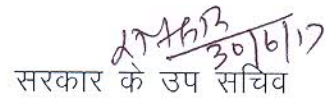 30/6/17
सरकार के उप सचिव